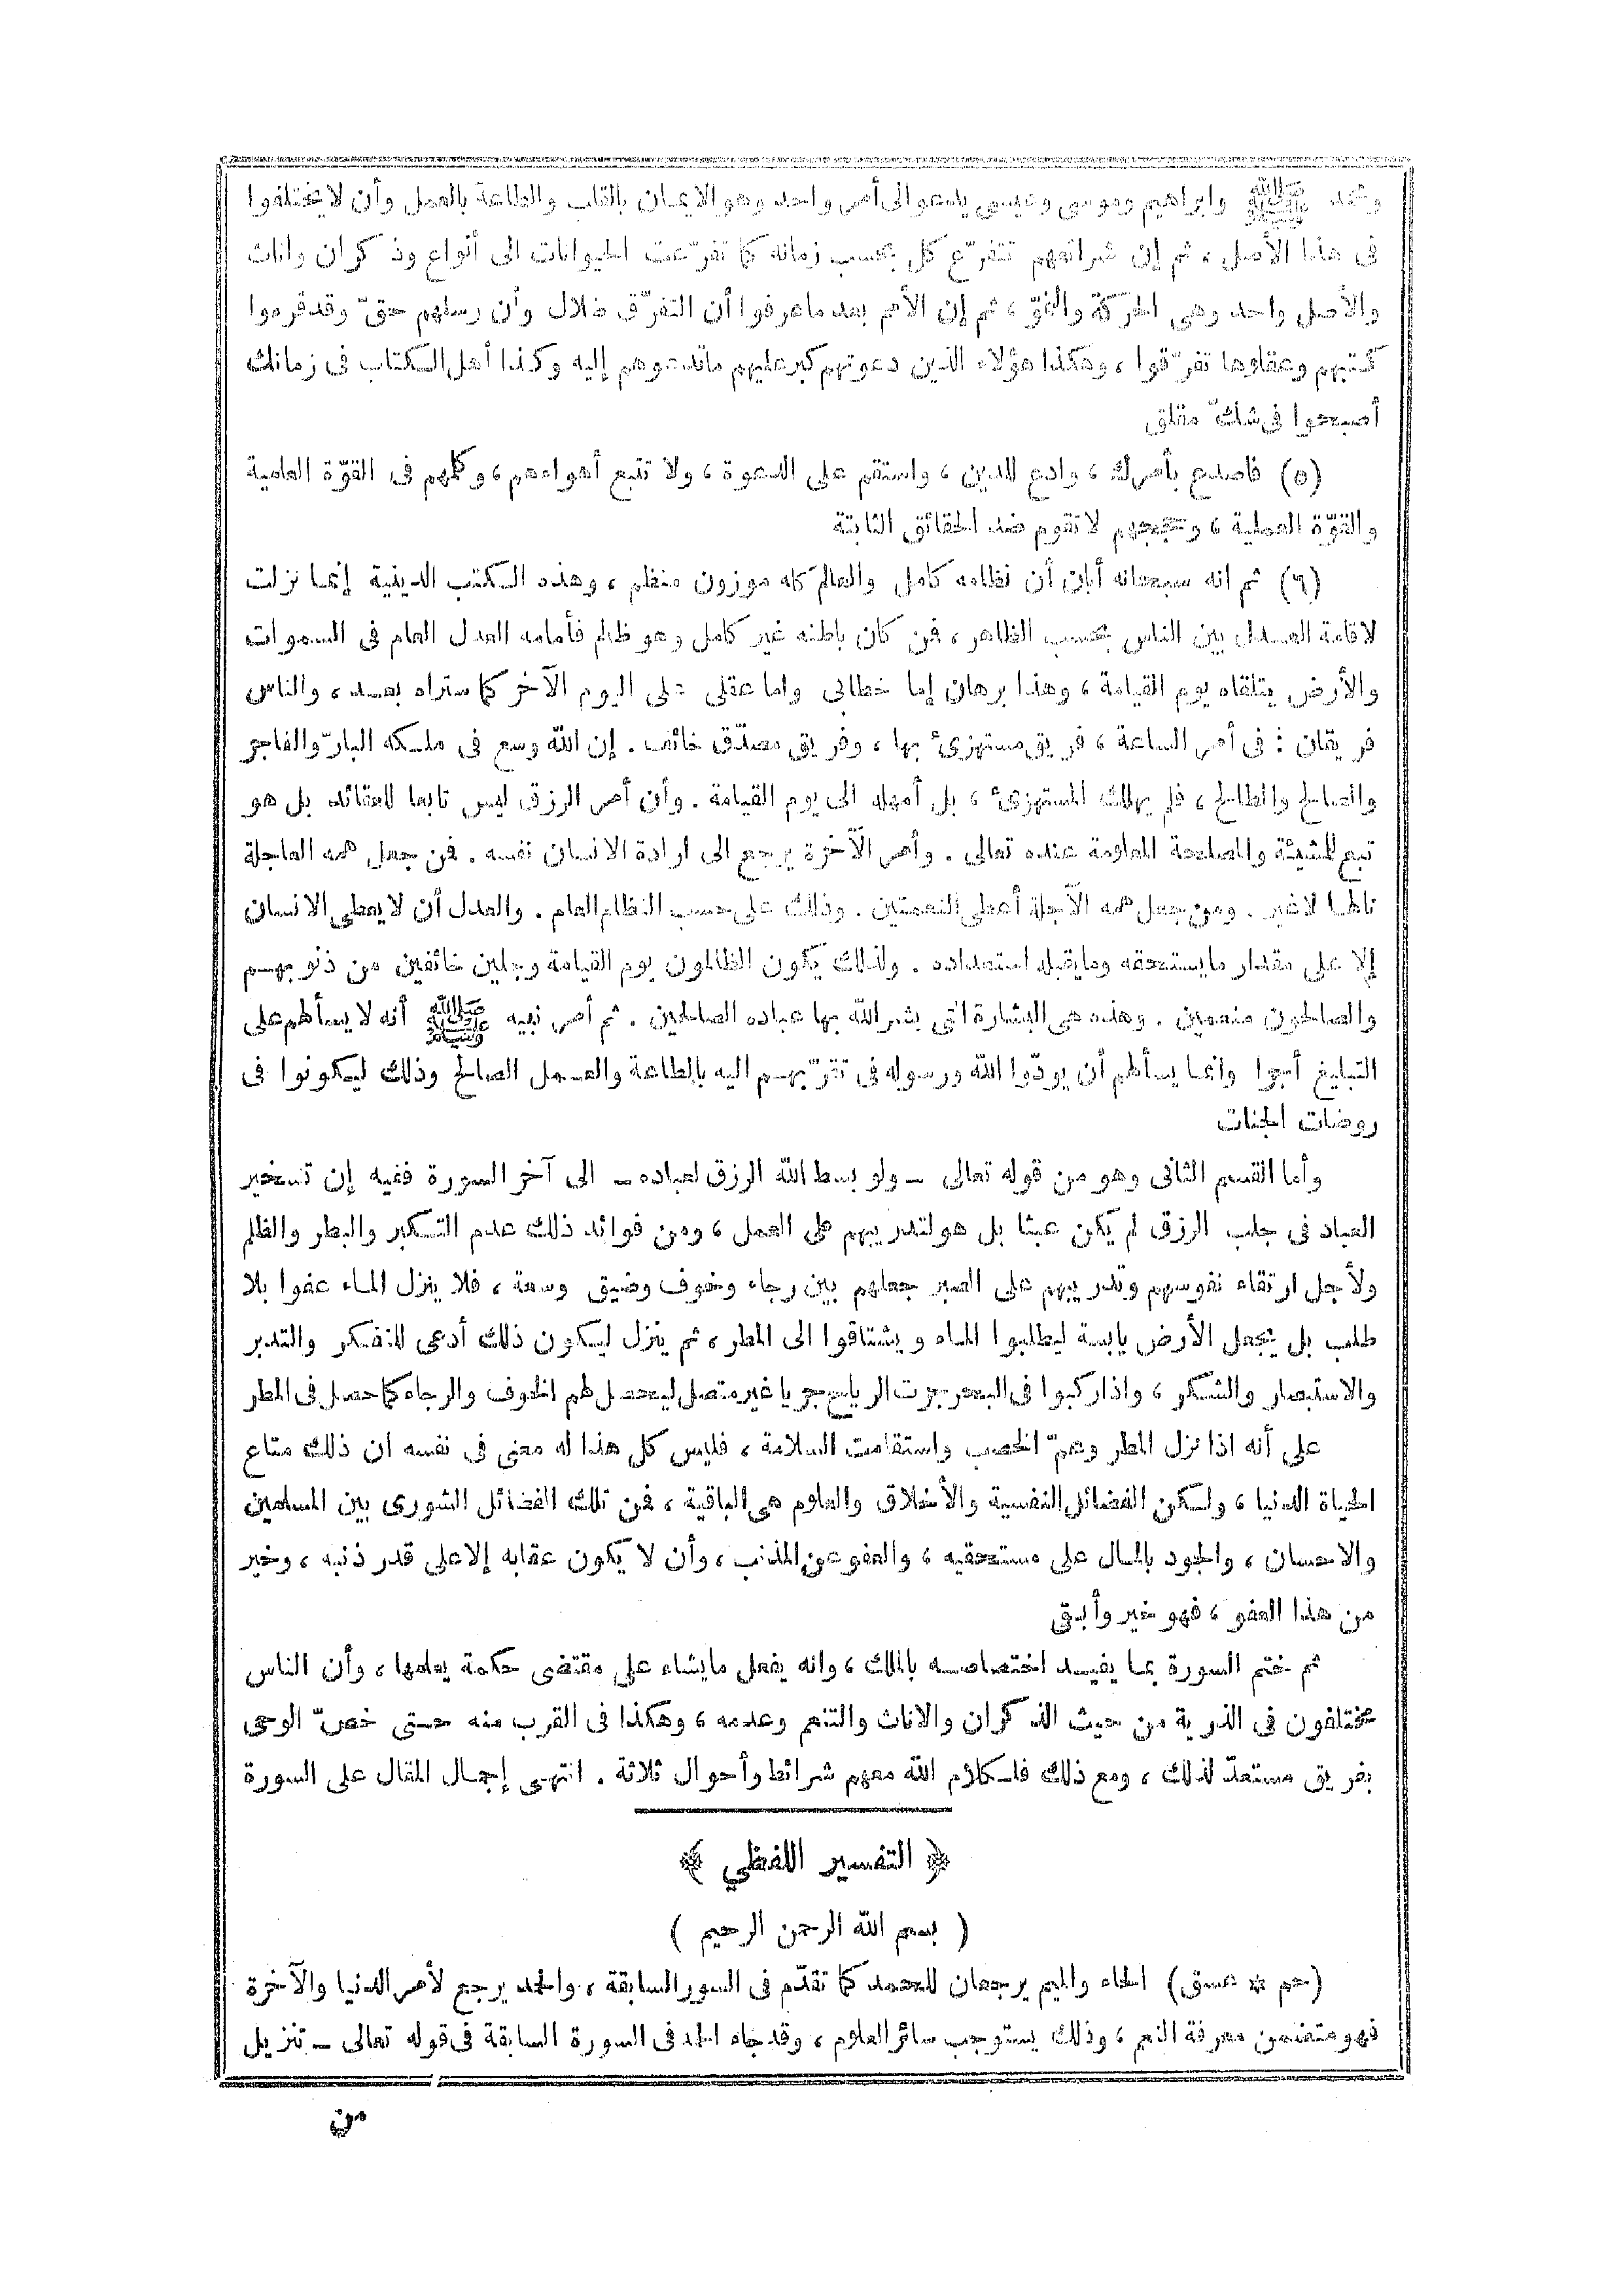 ومحمد ﷺ وابراهيم وموسى وعيسى يدعو الى أمر واحد وهو الايمان بالقلب والطاعة بالعمل وأن لا يختلفوا
فى هذا الأصل ، ثم إن شرائعهم تتفرّع كل بحسب زمانه كما تفرّعت الحيوانات الى أنواع وذكران واناث
والأصل واحد وهى الحركة والنموّ ، ثم إن الأمم بعد ماعرفوا أن التفرّق ضلال وأن رسلهم حقّ وقد قرءوا
كتبهم وعقلوها تفرّقوا ، وهكذا هؤلاء الذين دعوتهم كبر عليهم ماتدعوهم إليه وكذا أهل الكتاب فى زمانك
أصبحوا فى شكّ مقلق
(٥) فاصدع بأمرك ، وادع للدين ، واستقم على الدعوة ، ولا تتبع أهواءهم ، وكلهم فى القوّة العلمية
والقوّة العملية ، وحججهم لاتقوم ضد الحقائق الثابتة
(٦) ثم انه سبحانه أبان أن نظامه كامل والعالم كله موزون منظم ، وهذه الكتب الدينية إنما نزلت
لاقامة العدل بين الناس بحسب الظاهر ، فمن كان باطنه غير كامل وهو ظالم فأمامه العدل العام فى السموات
والأرض يتلقاه يوم القيامة ، وهذا برهان إما خطابى واما عقلى على اليوم الآخر كما ستراه بعد ، والناس
فريقان : فى أمر الساعة ، فريق مستهزئ بها ، وفريق مصدّق خائف . إن الله وسع فى ملكه البارّ والفاجر
والصالح والطالح ، فلم يهلك المستهزئ ، بل أمهله الى يوم القيامة . وأن أمر الرزق ليس تابعا للعقائد بل هو
تبع للمشيئة والمصلحة المعلومة عنده تعالى . وأمر الآخرة يرجع الى ارادة الانسان نفسه . فمن جعل همه العاجلة
نالها لاغير . ومن جعل همه الآجلة أعطى النعمتين . وذلك على حسب النظام العام . والعدل أن لايعطى الانسان
إلا على مقدار مايستحقه ومايقبله استعداده . ولذلك يكون الظالمون يوم القيامة وجلين خائفين من ذنوبهم
والصالحون منعمين . وهذه هى البشارة التى بشر الله بها عباده الصالحين . ثم أمر نبيه ﷺ أنه لا يسألهم على
التبليغ أجرا وانما يسألهم أن يودّوا الله ورسوله فى تقرّبهم اليه بالطاعة والعمل الصالح وذلك ليكونوا فى
روضات الجنات
وأما القسم الثانى وهو من قوله تعالى – ولو بسط الله الرزق لعباده – الى آخر السورة ففيه إن تسخير
العباد فى جلب الرزق لم يكن عبثا بل هو لتدريبهم على العمل ، ومن فوائد ذلك عدم التكبر والبطر والظلم
ولأجل ارتقاء نفوسهم وتدريبهم على الصبر جعلهم بين رجاء وخوف وضيق وسعة ، فلا ينزل الماء عفوا بلا
طلب بل يجعل الأرض يابسة ليطلبوا الماء ويشتاقوا الى المطر ، ثم ينزل ليكون ذلك أدعى للتفكر والتدبر
والاستبصار والشكر ، واذا ركبوا فى البحر جرت الرياح جريا غير متصل ليحصل لهم الخوف والرجاء كما حصل فى المطر
على أنه اذا نزل المطر وعمّ الخصب واستقامت السلامة ، فليس كل هذا له معنى فى نفسه ان ذلك متاع
الحياة الدنيا ، ولكن الفضائل النفسية والأخلاق والعلوم هى الباقية ، فمن تلك الفضائل الشورى بين المسلمين
والاحسان ، والجود بالمال على مستحقيه ، والعفو عن المذنب ، وأن لا يكون عقابه إلا على قدر ذنبه ، وخير
من هذا العفو ، فهو خير وأبقى
ثم ختم السورة بما يفيد اختصاصه بالملك ، وانه يفعل مايشاء على مقتضى حكمة يعلمها ، وأن الناس
مختلفون فى الذرية من حيث الذكران والاناث والتنعم وعدمه ، وهكذا فى القرب منه حتى خصّ الوحى
بفريق مستعدّ لذلك ، ومع ذلك فلكلام الله معهم شرائط وأحوال ثلاثة . انتهى إجمال المقال على السورة
﴿ التفسير اللفظي ﴾
( بسم الله الرحمن الرحيم )
(حم * عسق) الحاء والميم يرجعان للحمد كما تقدّم فى السور السابقة ، والحمد يرجع لأمر الدنيا والآخرة
فهو متضمن معرفة النعم ، وذلك يستوجب سائر العلوم ، وقد جاء الحمد فى السورة السابقة فى قوله تعالى – تنزيل
من